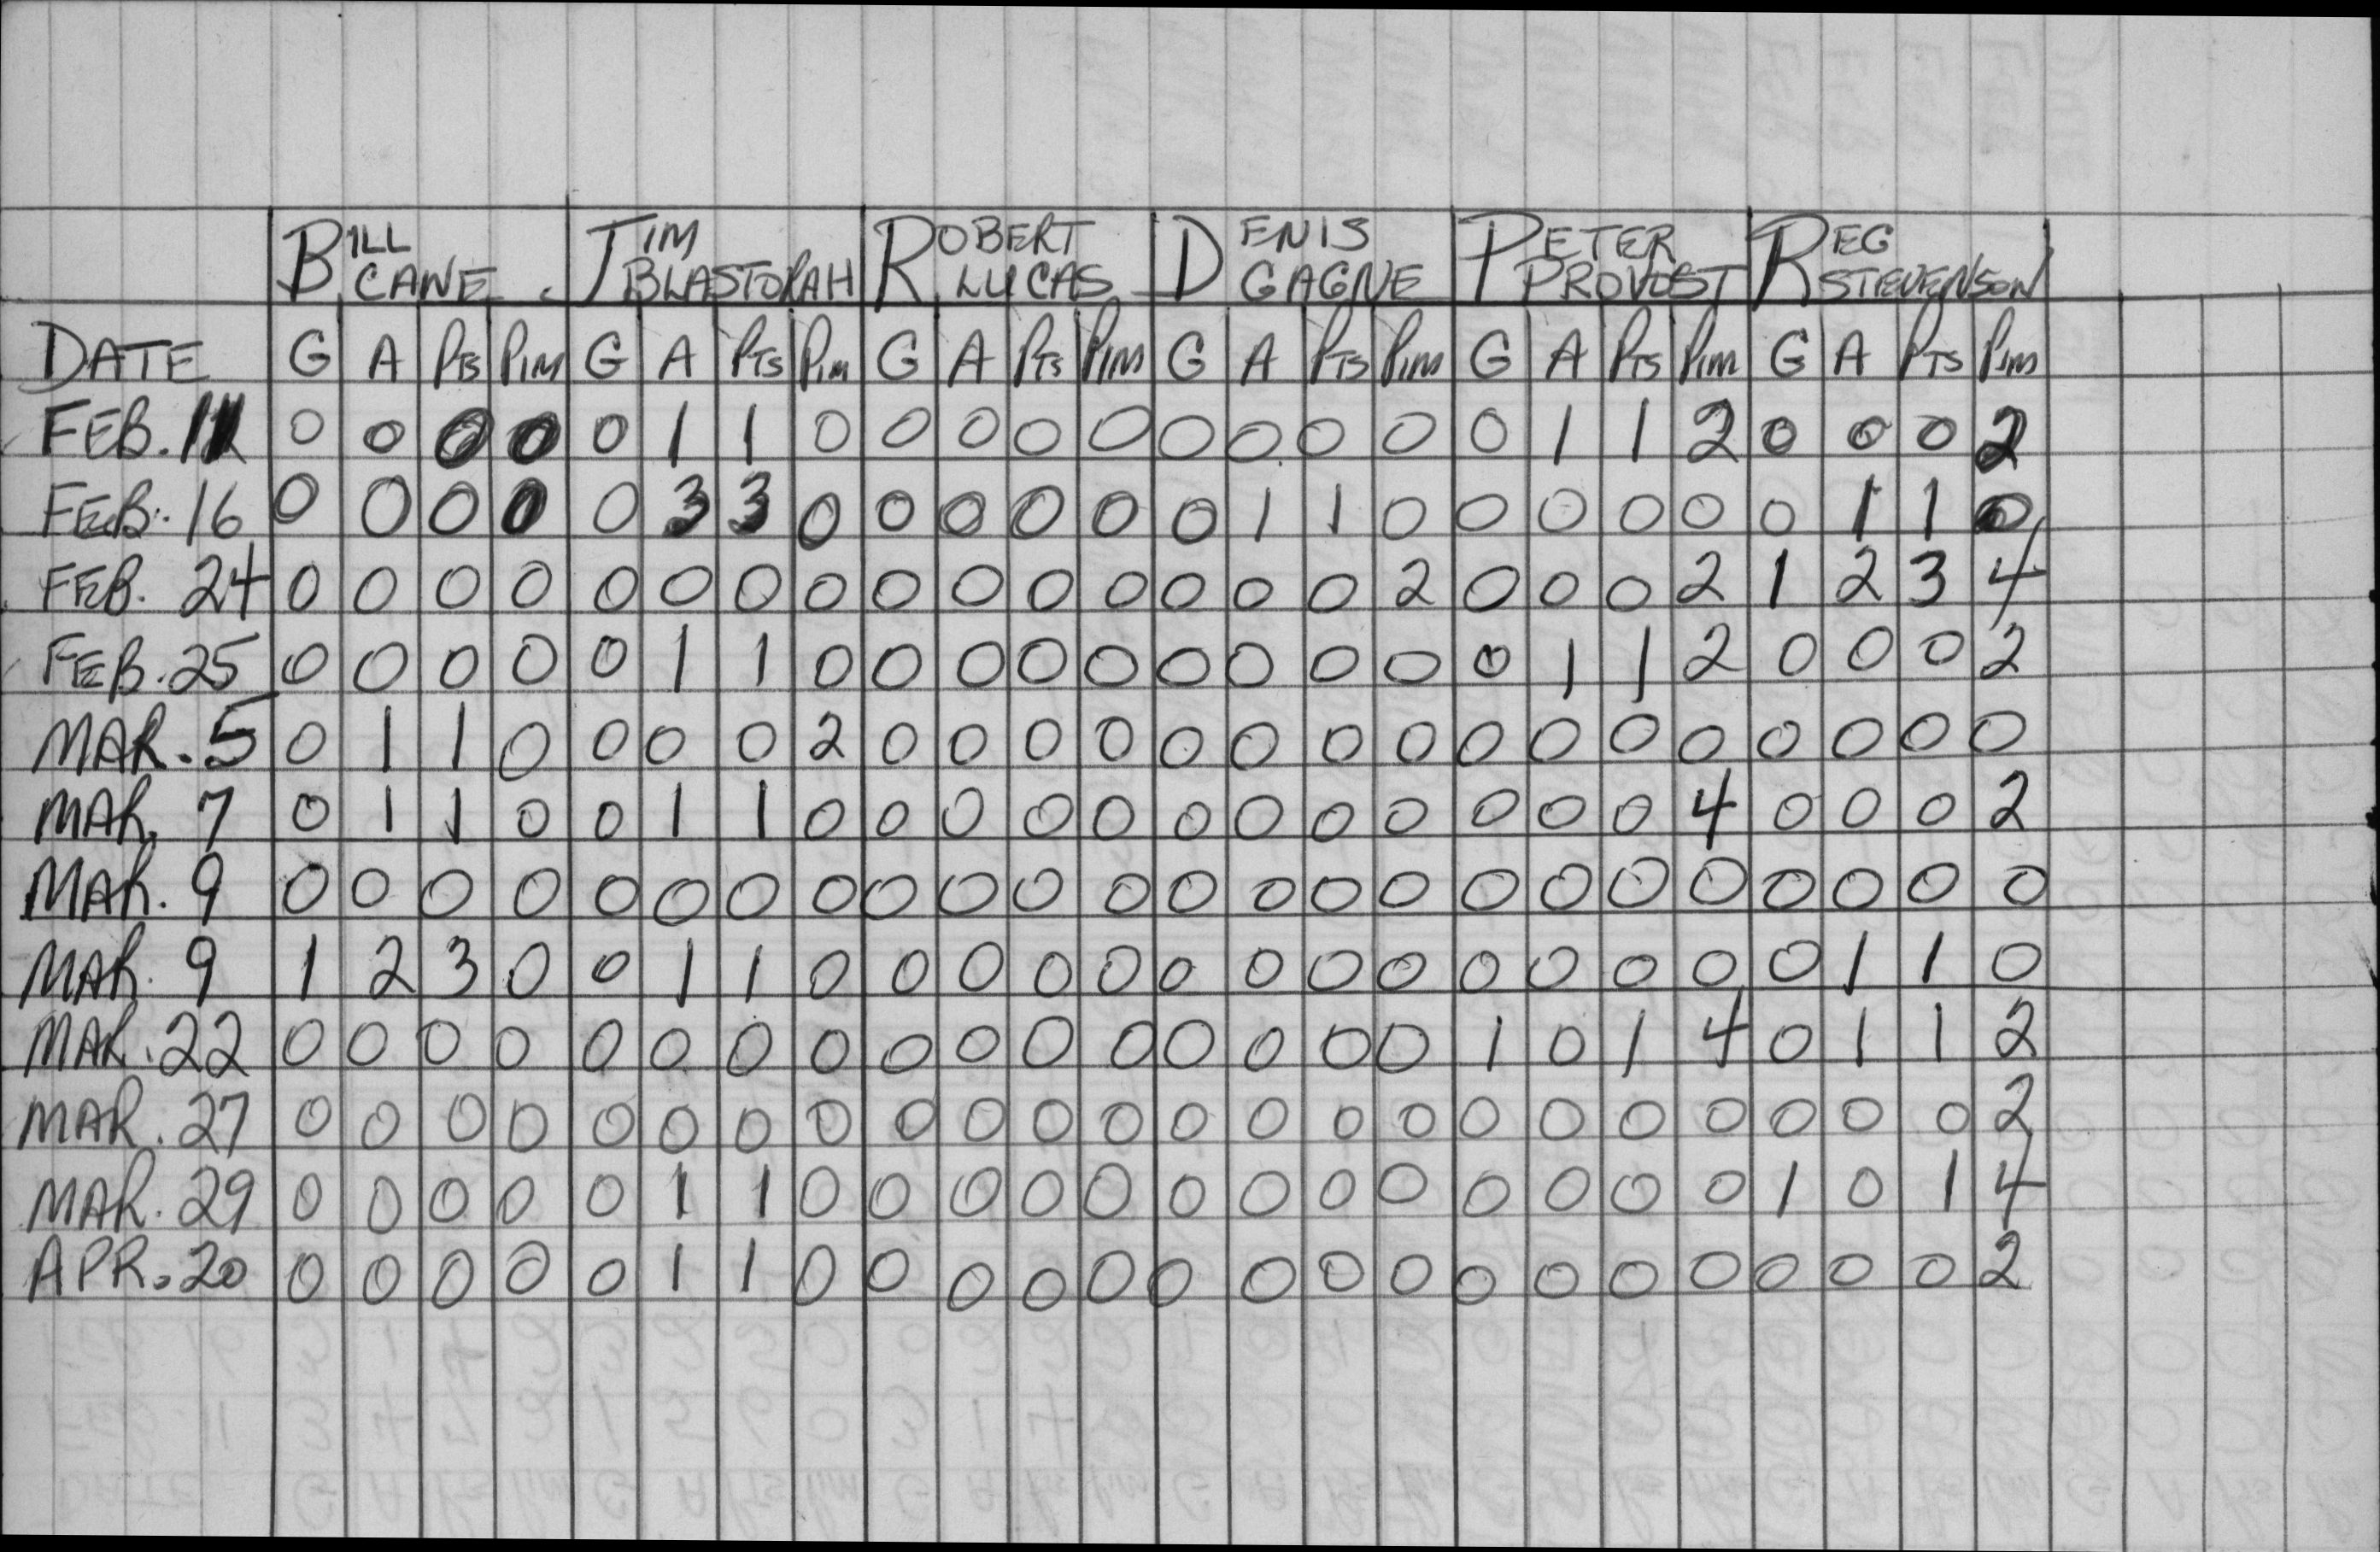 BILL CANE JIM BLASTORAH ROBERT LUCAS DENIS GAGNE PETER PROVOST REG STEVENSON
DATE G A PTS PIM G A PTS PIM G A PTS PIM G A PTS PIM G A PTS PIM G A PTS PIM
FEB. 11 0 0 0 0 0 1 1 0 0 0 0 0 0 0 0 0 0 1 1 2 0 0 0 2
FEB. 16 0 0 0 0 0 3 3 0 0 0 0 0 0 1 1 0 0 0 0 0 0 1 1 0
FEB. 24 0 0 0 0 0 0 0 0 0 0 0 0 0 0 0 2 0 0 0 2 1 2 3 4
FEB. 25 0 0 0 0 0 1 1 0 0 0 0 0 0 0 0 0 0 1 1 2 0 0 0 2
MAR. 5 0 1 1 0 0 0 0 2 0 0 0 0 0 0 0 0 0 0 0 0 0 0 0 0
MAR. 7 0 1 1 0 0 1 1 0 0 0 0 0 0 0 0 0 0 0 0 4 0 0 0 2
MAR. 9 0 0 0 0 0 0 0 0 0 0 0 0 0 0 0 0 0 0 0 0 0 0 0 0
MAR. 9 1 2 3 0 0 1 1 0 0 0 0 0 0 0 0 0 0 0 0 0 0 1 1 0
MAR. 22 0 0 0 0 0 0 0 0 0 0 0 0 0 0 0 0 1 0 1 4 0 1 1 2
MAR. 27 0 0 0 0 0 0 0 0 0 0 0 0 0 0 0 0 0 0 0 0 0 0 0 2
MAR. 29 0 0 0 0 0 1 1 0 0 0 0 0 0 0 0 0 0 0 0 0 1 0 1 4
APR. 20 0 0 0 0 0 1 1 0 0 0 0 0 0 0 0 0 0 0 0 0 0 0 0 2